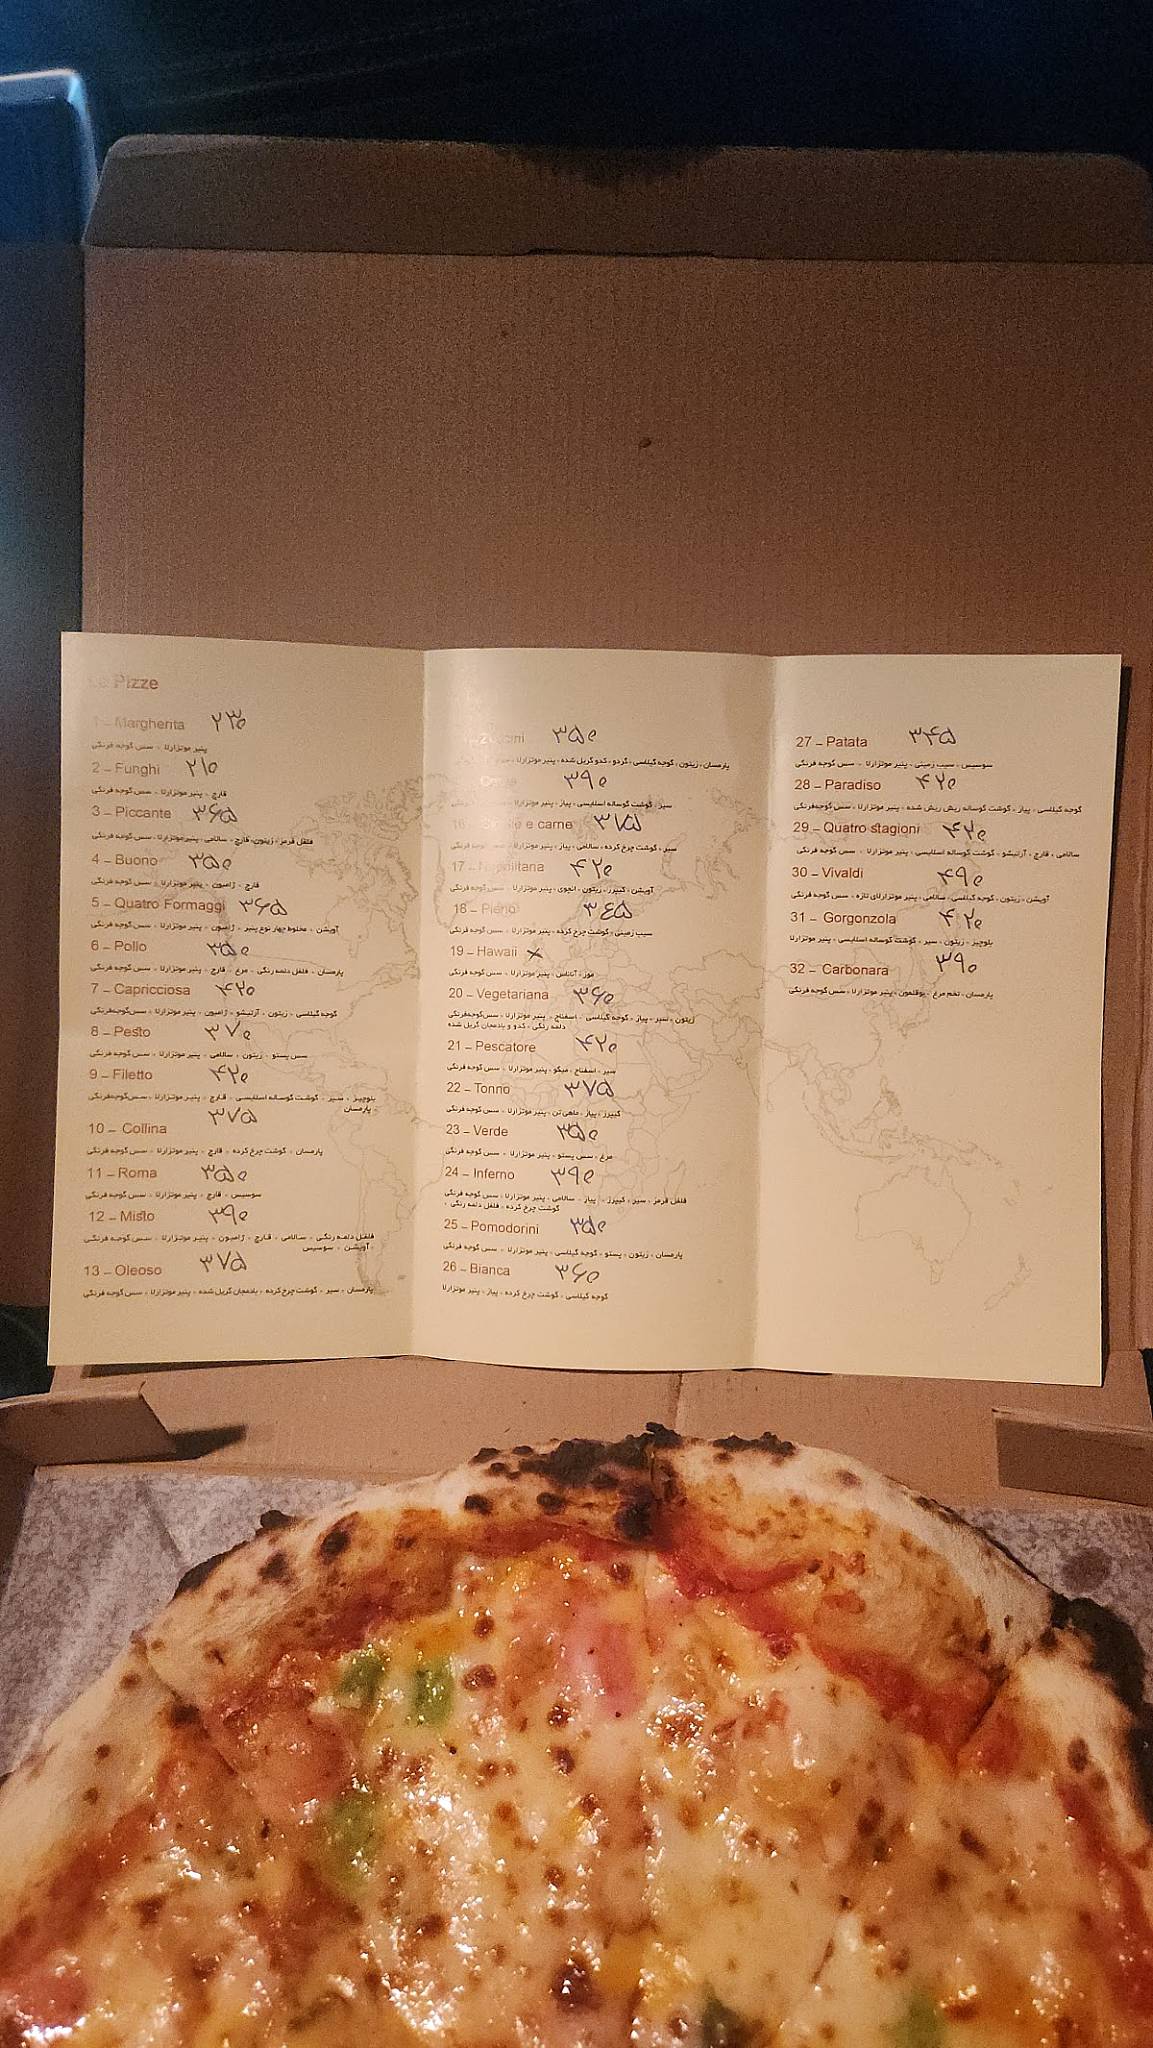 Le Pizze
1 – Margherita ۲۳۰
پنیر موتزارلا - سس گوجه فرنگی
2 – Funghi ۲۱۰
قارچ - پنیر موتزارلا - سس گوجه فرنگی
3 – Piccante ۳۶۵
فلفل قرمز - زیتون - قارچ - سالامی - پنیر موتزارلا - سس گوجه فرنگی
4 – Buono ۳۵۰
قارچ - ژامبون - پنیر موتزارلا - سس گوجه فرنگی
5 – Quatro Formaggi ۳۶۵
آویشن - مخلوط چهار نوع پنیر - ژامبون - پنیر موتزارلا - سس گوجه فرنگی
6 – Pollo ۳۵۰
پارمسان - فلفل دلمه رنگی - مرغ - قارچ - پنیر موتزارلا - سس گوجه فرنگی
7 – Capricciosa ۴۲۰
گوجه گیلاسی - زیتون - آرتیشو - ژامبون - پنیر موتزارلا - سس گوجه‌فرنگی
8 – Pesto ۳۷۰
سس پستو - زیتون - سالامی - پنیر موتزارلا - سس گوجه فرنگی
9 – Filetto ۴۲۰
بلوچیز - سیر - گوشت گوساله اسلایسی - قارچ - پنیر موتزارلا - سس گوجه‌فرنگی
- پارمسان
10 – Collina ۳۷۵
پارمسان - گوشت چرخ کرده - قارچ - پنیر موتزارلا - سس گوجه فرنگی
11 – Roma ۳۵۰
سوسیس - قارچ - پنیر موتزارلا - سس گوجه فرنگی
12 – Misto ۳۹۰
فلفل دلمه رنگی - سالامی - قارچ - ژامبون - پنیر موتزارلا - سس گوجه فرنگی
- آویشن - سوسیس
13 – Oleoso ۳۷۵
پارمسان - سیر - گوشت چرخ کرده - بادمجان گریل شده - پنیر موتزارلا - سس گوجه فرنگی
۳۵۰
پارمسان - زیتون - گوجه گیلاسی - گردو - کدو گریل شده - پنیر موتزارلا
۳۹۰
سیر - گوشت گوساله اسلایسی - پیاز - پنیر موتزارلا - سس گوجه فرنگی
16 e carne ۳۷۵
سیر - گوشت چرخ کرده - سالامی - پیاز - پنیر موتزارلا - سس گوجه فرنگی
17 – Napolitana ۴۲۰
آویشن - کیپرز - زیتون - انچوی - پنیر موتزارلا - سس گوجه فرنگی
18 – Pieno ۳۶۵
سیب زمینی - گوشت چرخ کرده - پنیر موتزارلا - سس گوجه فرنگی
19 – Hawaii ×
موز - آناناس - پنیر موتزارلا - سس گوجه فرنگی
20 – Vegetariana ۳۶۰
زیتون - سیر - پیاز - گوجه گیلاسی - اسفناج - پنیر موتزارلا - سس گوجه‌فرنگی
دلمه رنگی - کدو و بادمجان گریل شده
21 – Pescatore ۴۲۰
سیر - اسفناج - میگو - پنیر موتزارلا - سس گوجه فرنگی
22 – Tonno ۳۷۵
کیپرز - پیاز - ماهی تن - پنیر موتزارلا - سس گوجه فرنگی
23 – Verde ۳۵۰
مرغ - سس پستو - پنیر موتزارلا - سس گوجه فرنگی
24 – Inferno ۳۹۰
فلفل قرمز - سیر - کیپرز - پیاز - سالامی - پنیر موتزارلا - سس گوجه فرنگی
گوشت چرخ کرده - فلفل دلمه رنگی -
25 – Pomodorini ۳۵۰
پارمسان - زیتون - پستو - گوجه گیلاسی - پنیر موتزارلا - سس گوجه فرنگی
26 – Bianca ۳۶۰
گوجه گیلاسی - گوشت چرخ کرده - پیاز - پنیر موتزارلا
27 – Patata ۳۴۵
سوسیس - سیب زمینی - پنیر موتزارلا - سس گوجه فرنگی
28 – Paradiso ۴۲۰
گوجه گیلاسی - پیاز - گوشت گوساله ریش ریش شده - پنیر موتزارلا - سس گوجه‌فرنگی
29 – Quatro stagioni ۴۲۰
سالامی - قارچ - آرتیشو - گوشت گوساله اسلایسی - پنیر موتزارلا - سس گوجه فرنگی
30 – Vivaldi ۴۹۰
آویشن - زیتون - گوجه گیلاسی - سالامی - پنیر موتزارلای تازه - سس گوجه فرنگی
31 – Gorgonzola ۴۲۰
بلوچیز - زیتون - سیر - گوشت گوساله اسلایسی - پنیر موتزارلا
32 – Carbonara ۳۹۰
پارمسان - تخم مرغ - بوقلمون - پنیر موتزارلا - سس گوجه فرنگی